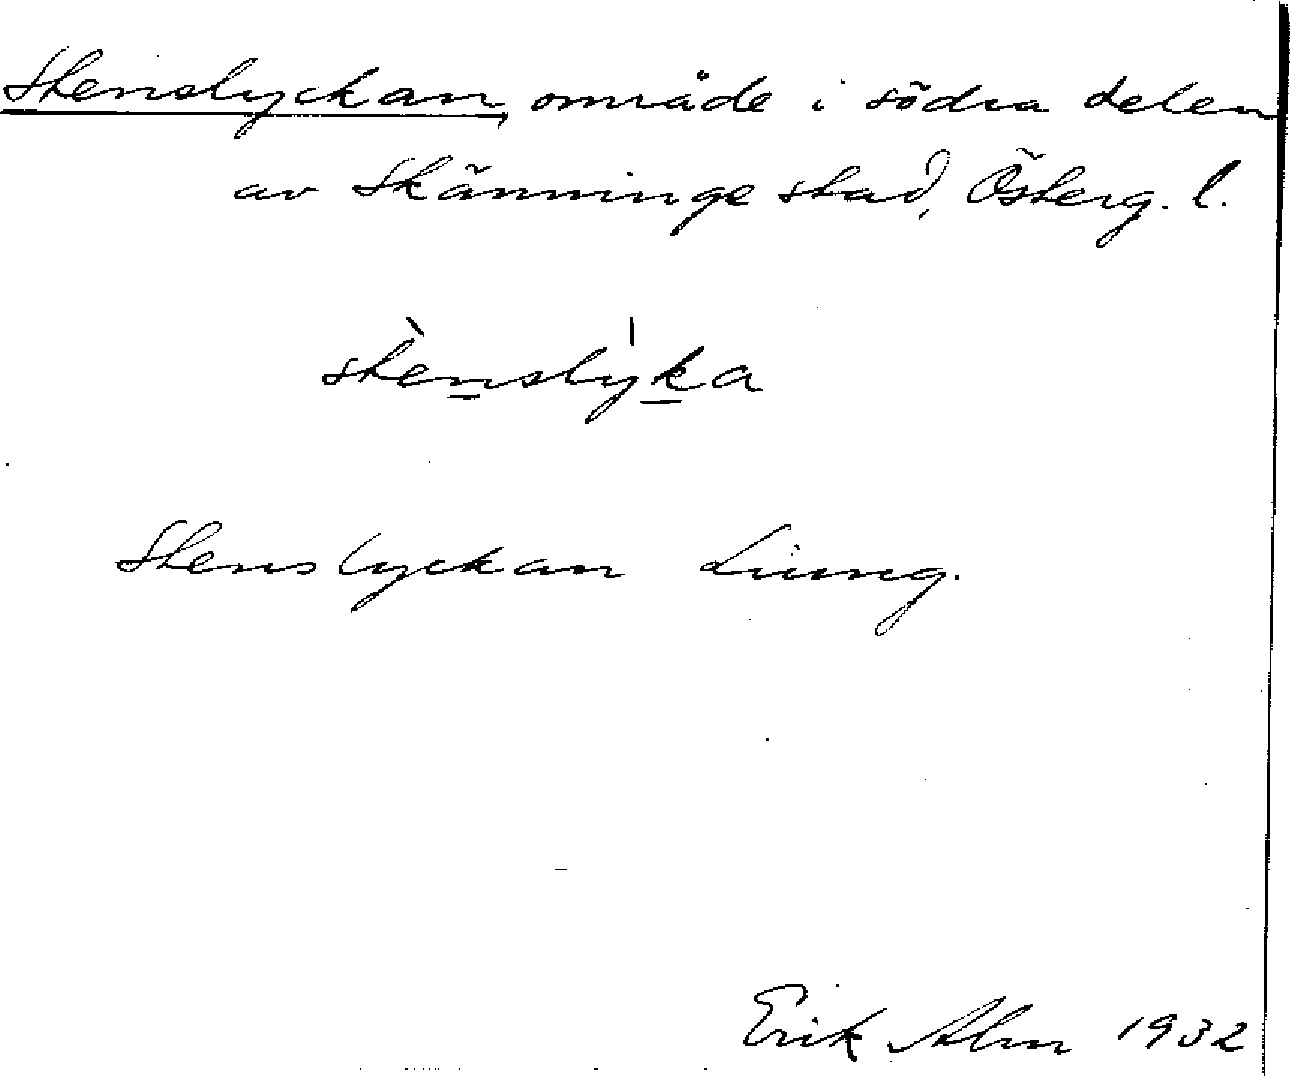 Stenslyckan, område i södra delen
av Skänninge stad, Österg. l.
stènslýka
Stenslyckan Ljung.
Erik Alm 1932